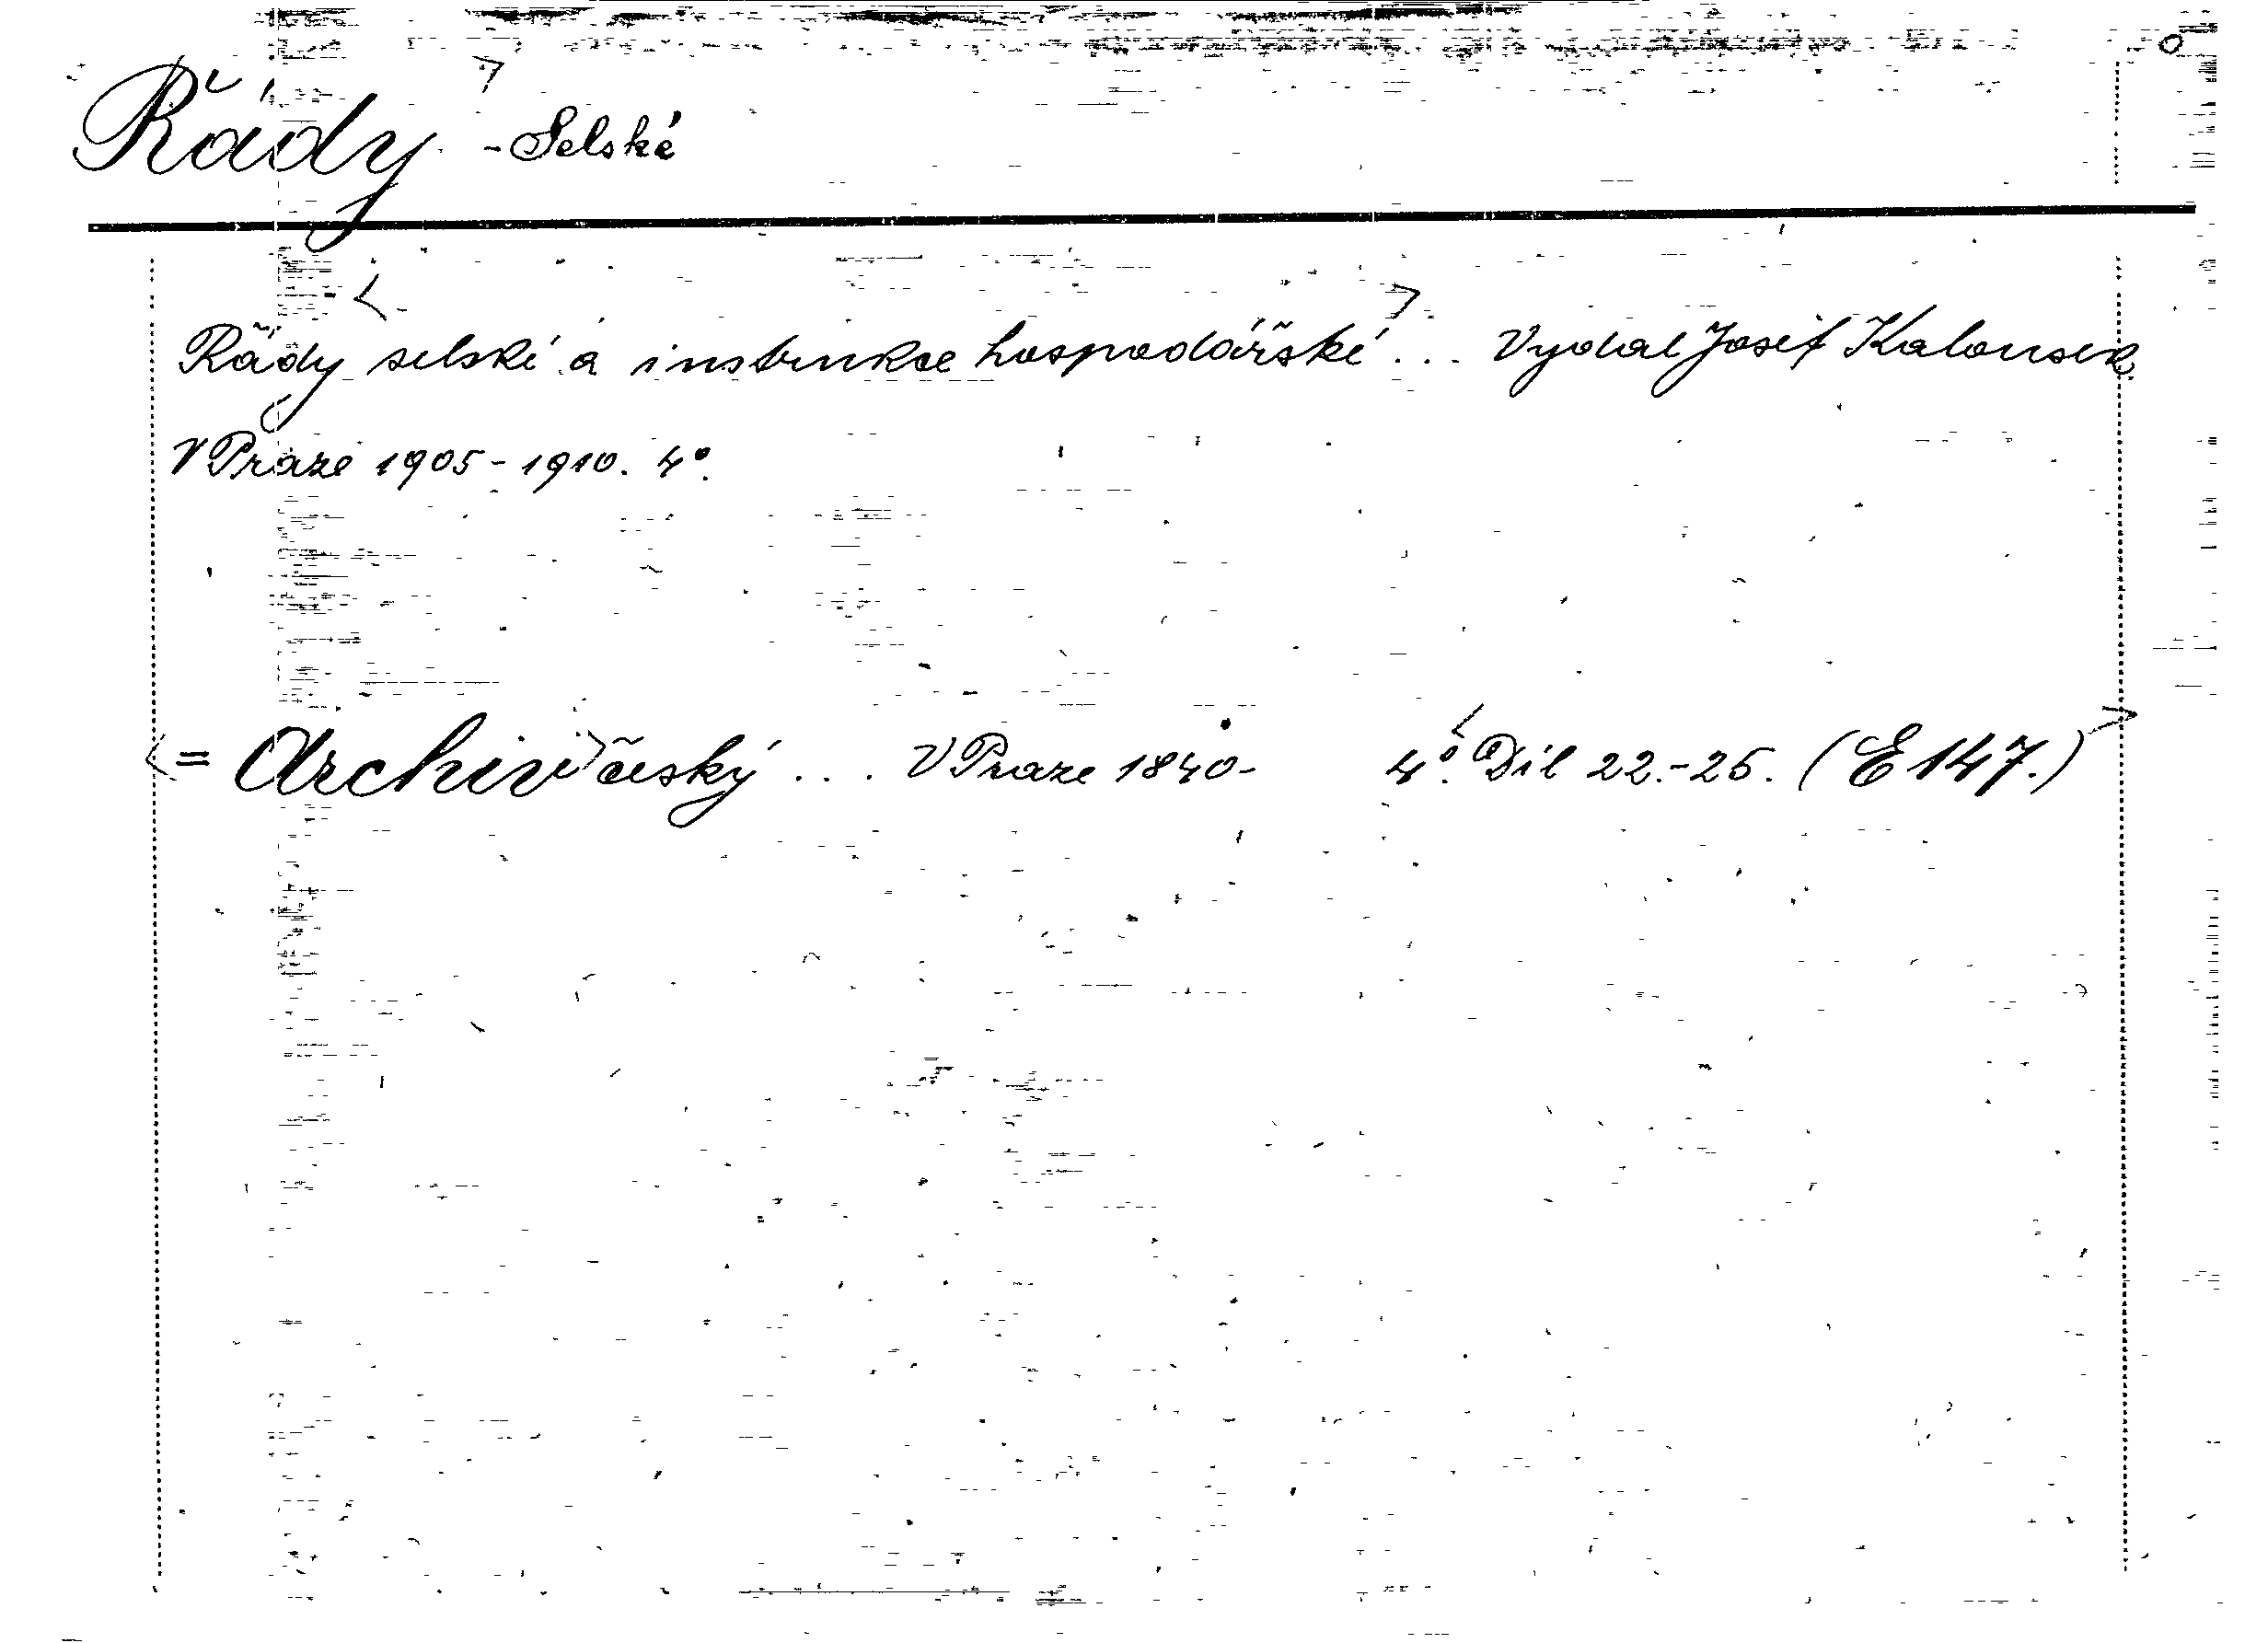 Řády - Selské
Řády selské a instrukce hospodářské ... Vydal Josef Kalousek
V Praze 1905-1910. 4°.
= Archiv český ... V Praze 1840- 4°. Díl 22.-25. (E 147.)